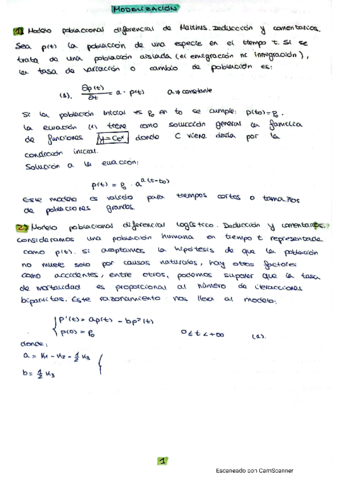 MODELIZACIÓN
1) Modelo poblacional diferencial de Malthus. Deducción y comentarios.
Sea p(t) la población de una especie en el tiempo t. Si se
trata de una población aislada (ni emigración ni inmigración),
la tasa de variación o cambio de población es:
(1). ∂p(t)/∂t = a · p(t) a → constante
Si la población inicial es p₀ en t₀ se cumple: p(t₀)=p₀.
La ecuación (1) tiene como solución general la familia
de funciones donde C viene dada por la
condición inicial.
Solución a la ecuación:
p(t) = p₀ · a^(a(t-t₀))
Este modelo es válido para tiempos cortos o tamaños
de poblaciones grandes.
2) Modelo poblacional diferencial logístico. Deducción y comentarios.
Consideramos una población humana en tiempo t representada
como p(t). Si aceptamos la hipótesis de que la población
no muere solo por causas naturales, hay otros factores
como accidentes, entre otros, podemos suponer que la tasa
de mortalidad es proporcional al número de interacciones
bipartitas. Este razonamiento nos lleva al modelo:
{ p'(t) = ap(t) - bp²(t)
{ p(0) = p₀ 0 ≤ t < +∞ (1).
donde:
a = k₁ - k₂ - ½ k₃
b = ½ k₃
1
Escaneado con CamScanner